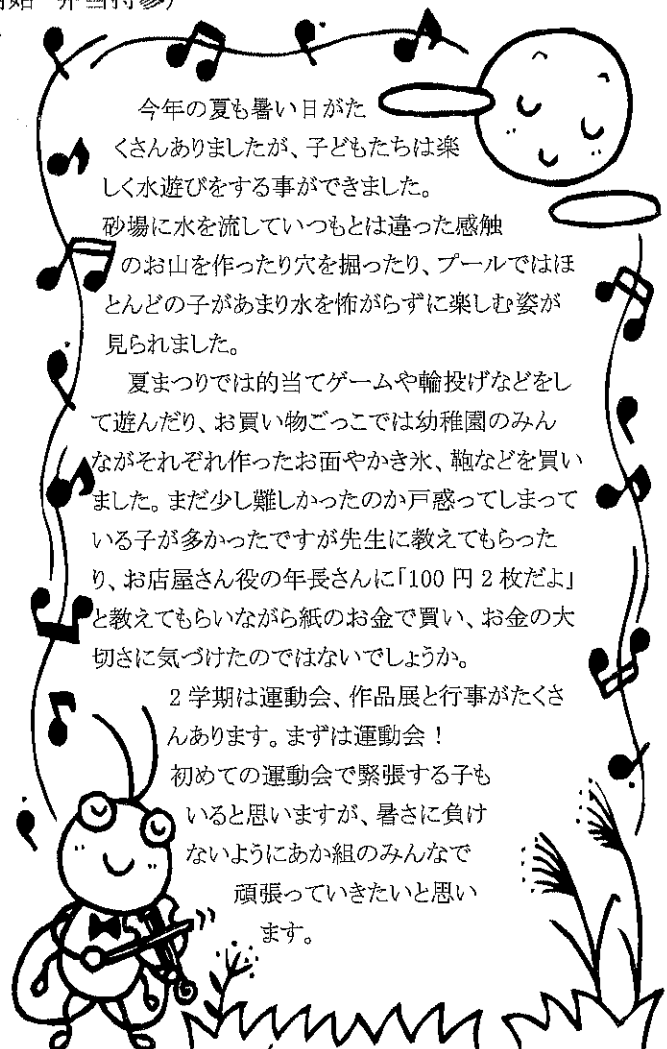 弁当持参)
今年の夏も暑い日がた
くさんありましたが、子どもたちは楽
しく水遊びをする事ができました。
砂場に水を流していつもとは違った感触
のお山を作ったり穴を掘ったり、プールではほ
とんどの子があまり水を怖がらずに楽しむ姿が
見られました。
夏まつりでは的当てゲームや輪投げなどをし
て遊んだり、お買い物ごっこでは幼稚園のみん
ながそれぞれ作ったお面やかき氷、鞄などを買い
ました。まだ少し難しかったのか戸惑ってしまって
いる子が多かったですが先生に教えてもらった
り、お店屋さん役の年長さんに「100円2枚だよ」
と教えてもらいながら紙のお金で買い、お金の大
切さに気づけたのではないでしょうか。
2学期は運動会、作品展と行事がたくさ
んあります。まずは運動会!
初めての運動会で緊張する子も
いると思いますが、暑さに負け
ないようにあか組のみんなで
頑張っていきたいと思い
ます。